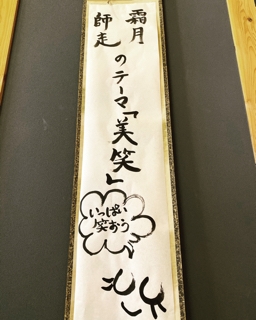 霜月
師走
のテーマ「美笑」
いっぱい
笑おう